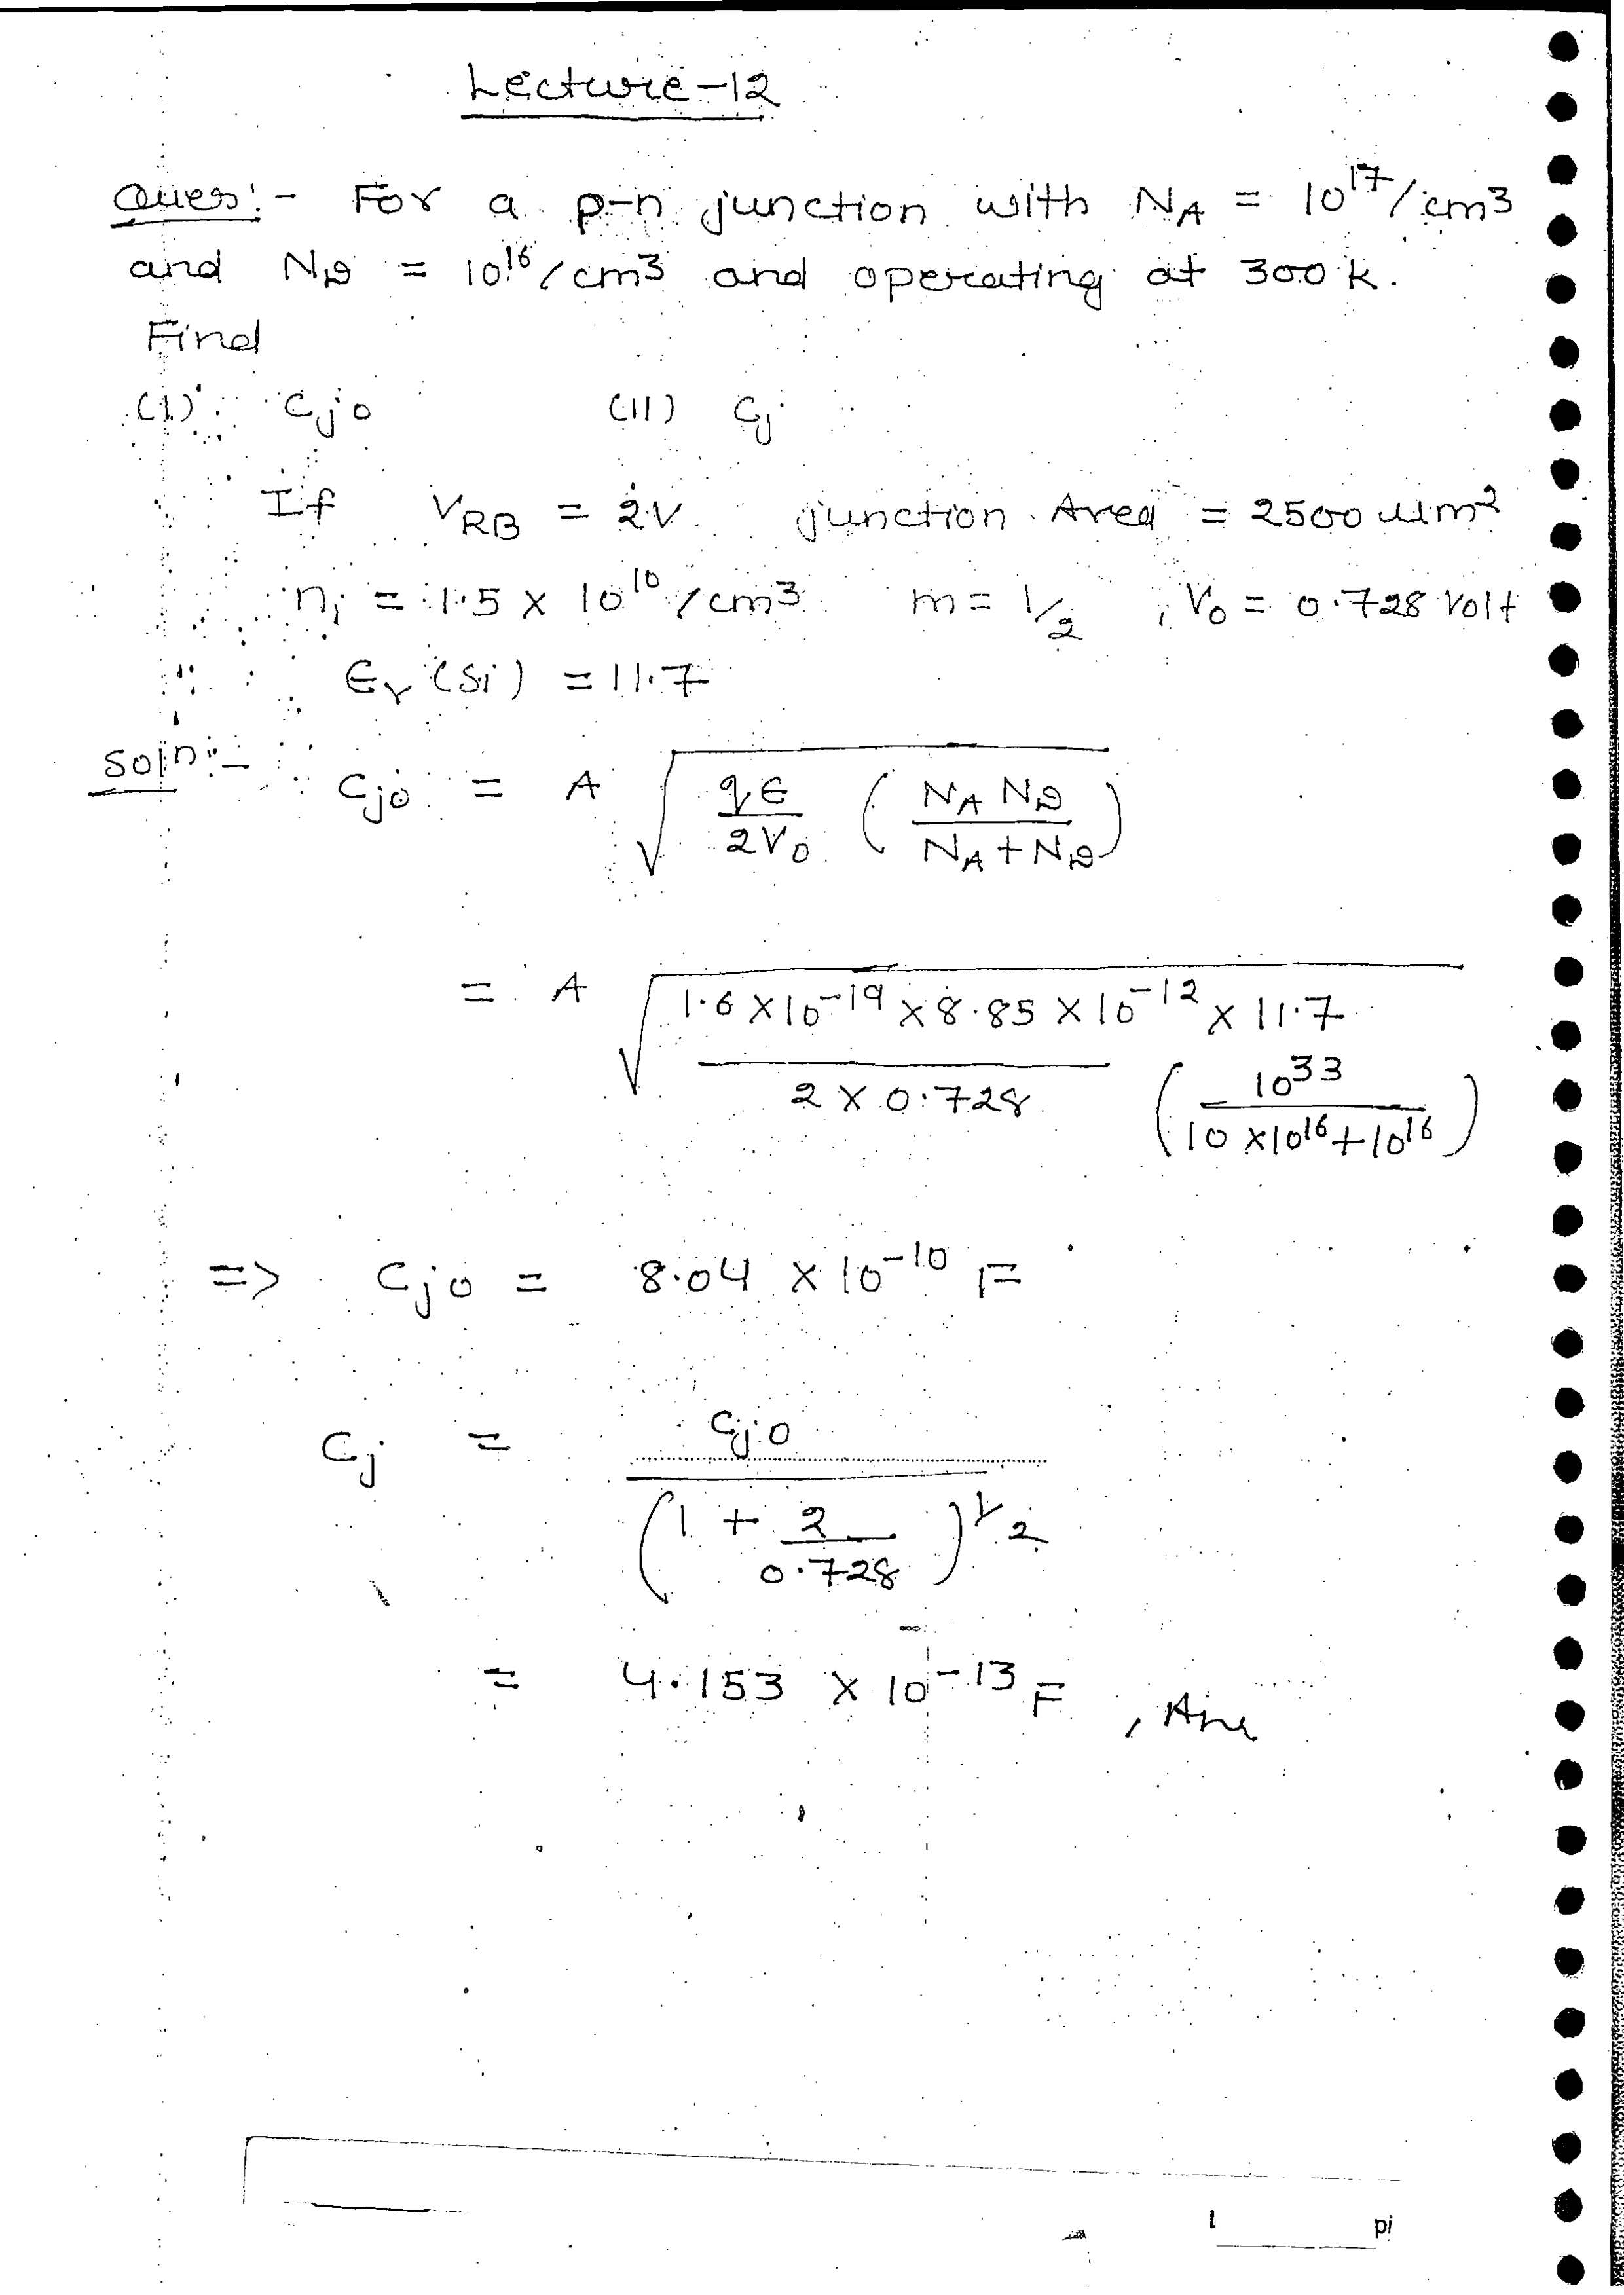 Lecture-12
Ques:- For a p-n junction with NA = 10^17/cm3
and ND = 10^16/cm3 and operating at 300k.
Find
(I) Cjo (II) Cj
If VRB = 2V junction Area = 2500 μm^2
ni = 1.5 × 10^10/cm3 m = 1/2 , V0 = 0.728 Volt
∈r (Si) = 11.7
Soln:- Cjo = A √(q∈/2V0 (NA ND/NA+ND))
= A √(1.6×10^-19 × 8.85×10^-12 × 11.7/2×0.728 (10^33/10×10^16+10^16))
=> Cjo = 8.04 × 10^-10 F
Cj = Cjo/(1 + 2/0.728)^1/2
= 4.153 × 10^-13 F , Ans
pi